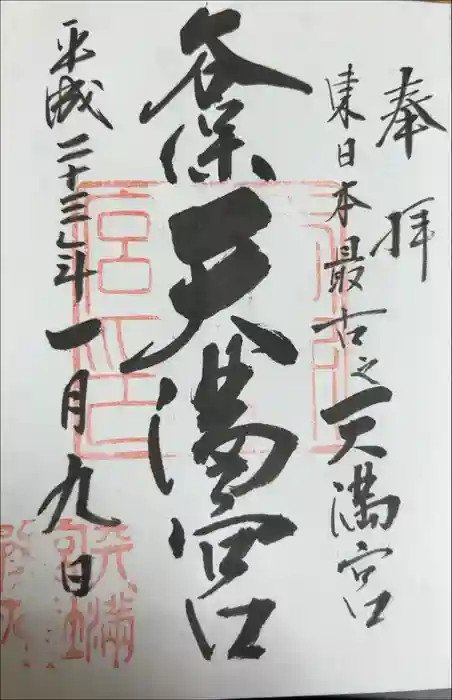 奉拝
東日本最古之天満宮
谷保天満宮
平成二十三年一月九日